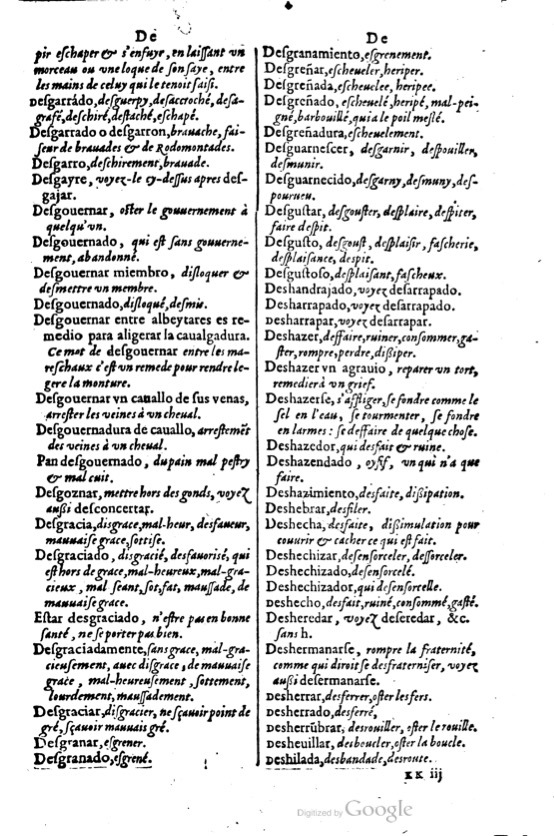 De
pir eſchaper & s'enfuye, en laiſſant vn
morceau ou vne loque de ſon ſaye, entre
les mains de celuy qui le tenoit ſaiſi.
Deſgarrado, deſguerpy, deſaccroché, deſa-
grafé, deſchiré, deſtaché, eſchapé.
Deſgarrado o deſgarron, brauache, fai-
ſeur de brauades & de Rodomontades.
Deſgarro, deſchirement, brauade.
Deſgayre, voyez-le cy-deſſus apres deſ-
gajar.
Deſgouernar, oſter le gouuernement à
quelqu'vn.
Deſgouernado, qui est ſans gouuerne-
ment, abandonné.
Deſgouernar miembro, diſloquer &
deſmettre vn membre.
Deſgouernado, diſloqué, deſmis.
Deſgouernar entre albeytares es re-
medio para aligerar la caualgadura.
Ce mot de deſgouernar entre les ma-
reſchaux c'eſt vn remede pour rendre le-
gere la monture.
Deſgouernar vn cauallo de ſus venas,
arreſter les veines à vn cheual.
Deſgouernadura de cauallo, arreſtemẽt
des veines à vn cheual.
Pan deſgouernado, du pain mal peſtry
& mal cuit.
Deſgoznar, mettre hors des gonds, voyez
außi deſconcertar.
Deſgracia, diſgrace, mal-heur, desfaueur,
mauuaiſe grace, ſottiſe.
Deſgraciado, diſgracié, desfauoriſé, qui
eſt hors de grace, mal-heureux, mal-gra-
cieux, mal ſeant, ſot, fat, mauſſade, de
mauuaiſe grace.
Eſtar deſgraciado, n'eſtre pas en bonne
ſanté, ne ſe porter pas bien.
Deſgraciadamente, ſans grace, mal-gra-
cieuſement, auec diſgrace, de mauuaiſe
grace, mal-heureuſement, ſottement,
lourdement, mauſſadement.
Deſgraciar, diſgracier, ne ſçauoir point de
gré, ſçauoir mauuais gré.
Deſgranar, eſgrener.
Deſgranado, eſgrené.
De
Deſgranamiento, eſgrenement.
Deſgreñar, eſcheueler, heriper.
Deſgreñada, eſcheuelee, heripee.
Deſgreñado, eſcheuelé, heripé, mal-pei-
gné, barbouillé, qui a le poil meſlé.
Deſgreñadura, eſcheuelement.
Deſguarneſcer, deſgarnir, deſpouiller,
deſmunir.
Deſguarnecido, deſgarny, deſmuny, deſ-
pourueu.
Deſguſtar, deſgouſter, deſplaire, deſpiter,
faire deſpit.
Deſguſto, deſgouſt, deſplaiſir, faſcherie,
deſplaiſance, deſpit.
Deſguſtoſo, deſplaiſant, faſcheux.
Deshandrajado, voyez deſarrapado.
Desharrapado, voyez deſarrapado.
Desharrapar, voyez deſarrapar.
Deshazer, deffaire, ruiner, conſommer, ga-
ſter, rompre, perdre, dißiper.
Deshazer vn agrauio, reparer vn tort,
remedier à vn grief.
Deshazerſe, s'affliger, ſe fondre comme le
ſel en l'eau, ſe tourmenter, ſe fondre
en larmes: ſe deffaire de quelque choſe.
Deshazedor, qui desfait & ruine.
Deshazendado, oyſif, vn qui n'a que
faire.
Deshazimiento, desfaite, dißipation.
Deshebrar, desfiler.
Deshecha, desfaite, dißimulation pour
couurir & cacher ce qui eſt fait.
Deshechizar, deſenſorceler, deſſorceler.
Deshechizado, deſenſorcelé.
Deshechizador, qui deſenſorcelle.
deshecho, desfait, ruiné, conſommé, gaſté.
Desheredar, voyez deſeredar, &c.
ſans h.
Deshermanarſe, rompre la fraternité,
comme qui diroit ſe desfraterniſer, voyez
außi deſermanarſe.
desherrar, desferrer, oſter les fers.
desherrado, desferré,
desherrũbrar, deſrouiller, oſter le rouille.
desheuillar, desboucler, oſter la boucle.
deshilada, desbandade, desroute.
KK iij
Digitized by Google